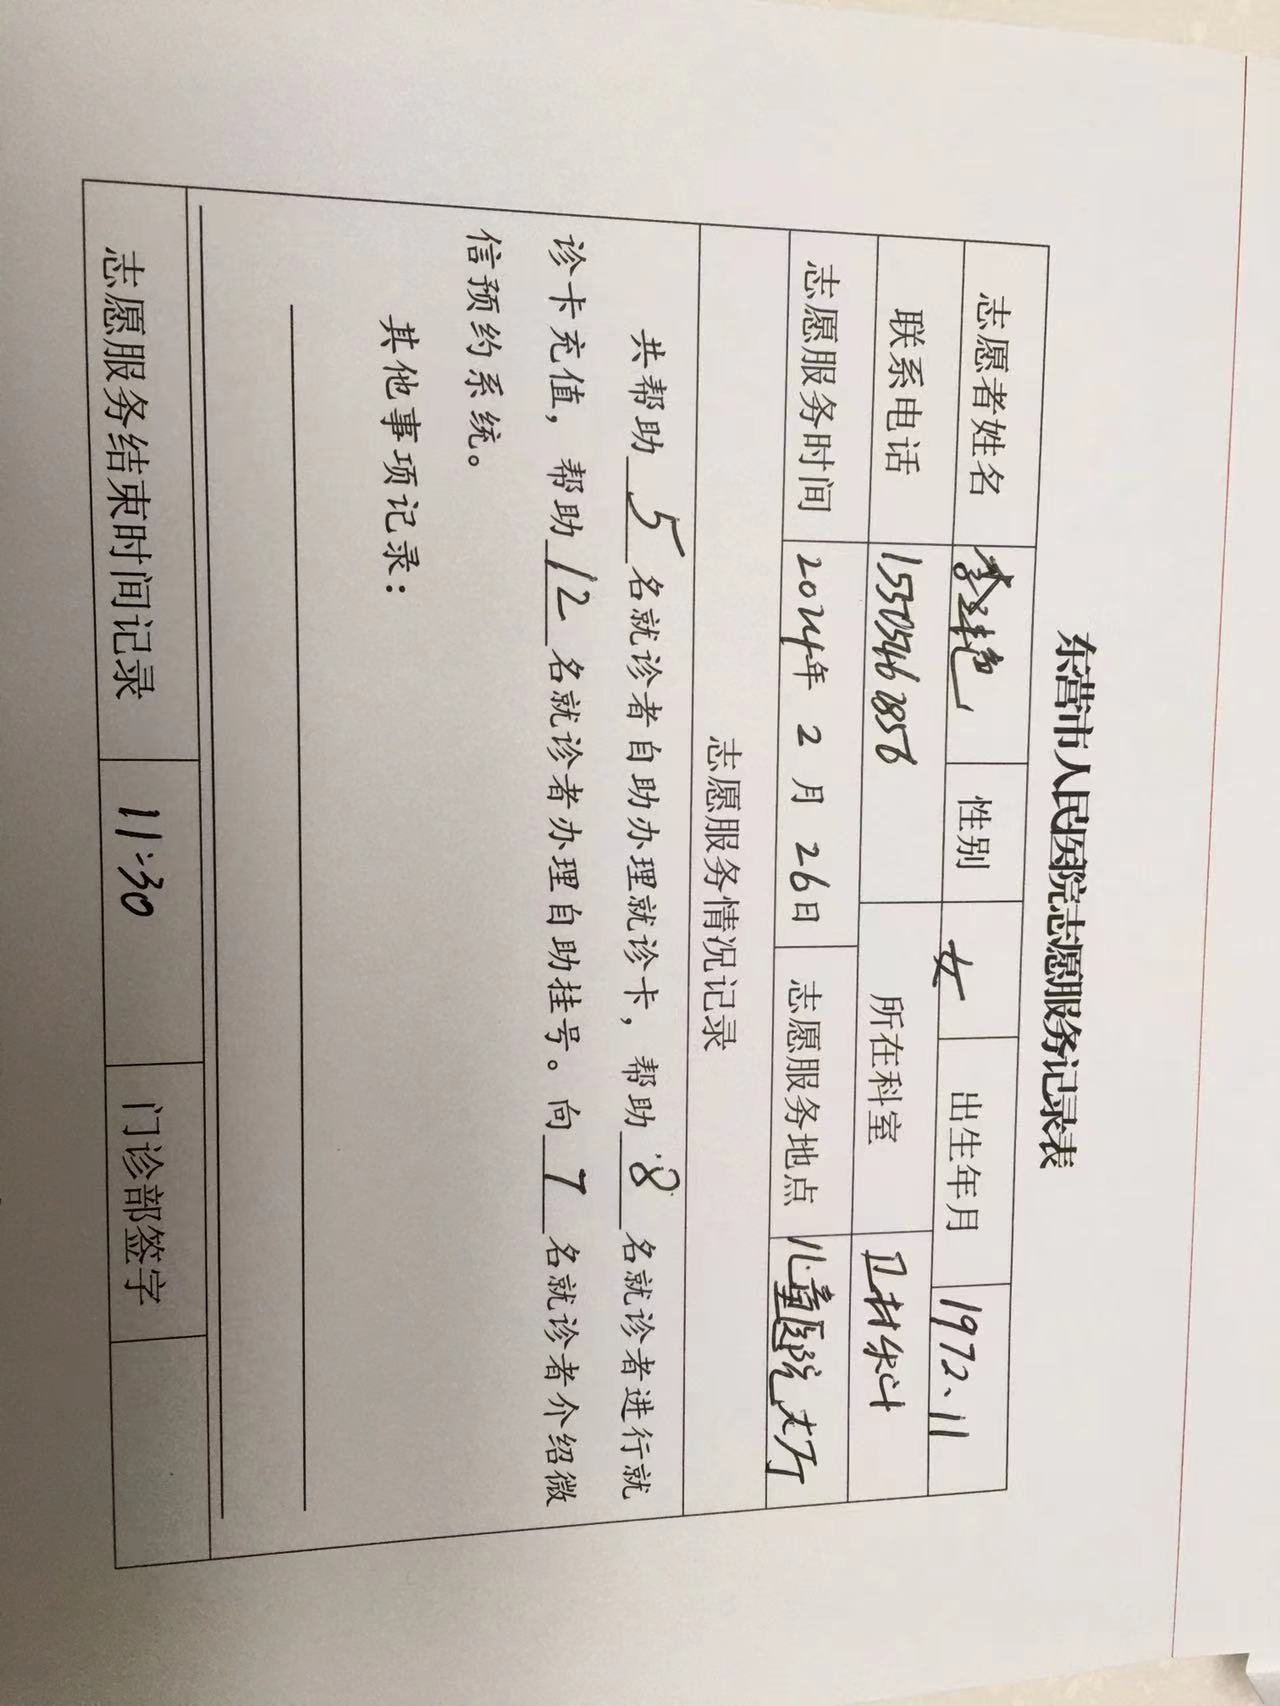 东营市人民医院志愿服务记录表
志愿者姓名 李艳 性别 女 出生年月 1972.11
联系电话 所在科室 卫材东科
志愿服务时间 2024年 2 月 26日 志愿服务地点 儿童医院大厅
志愿服务情况记录
共帮助 5 名就诊者自助办理就诊卡，帮助 8 名就诊者进行就
诊卡充值，帮助 12 名就诊者办理自助挂号。向 7 名就诊者介绍微
信预约系统。
其他事项记录：
志愿服务结束时间记录 11:30 门诊部签字